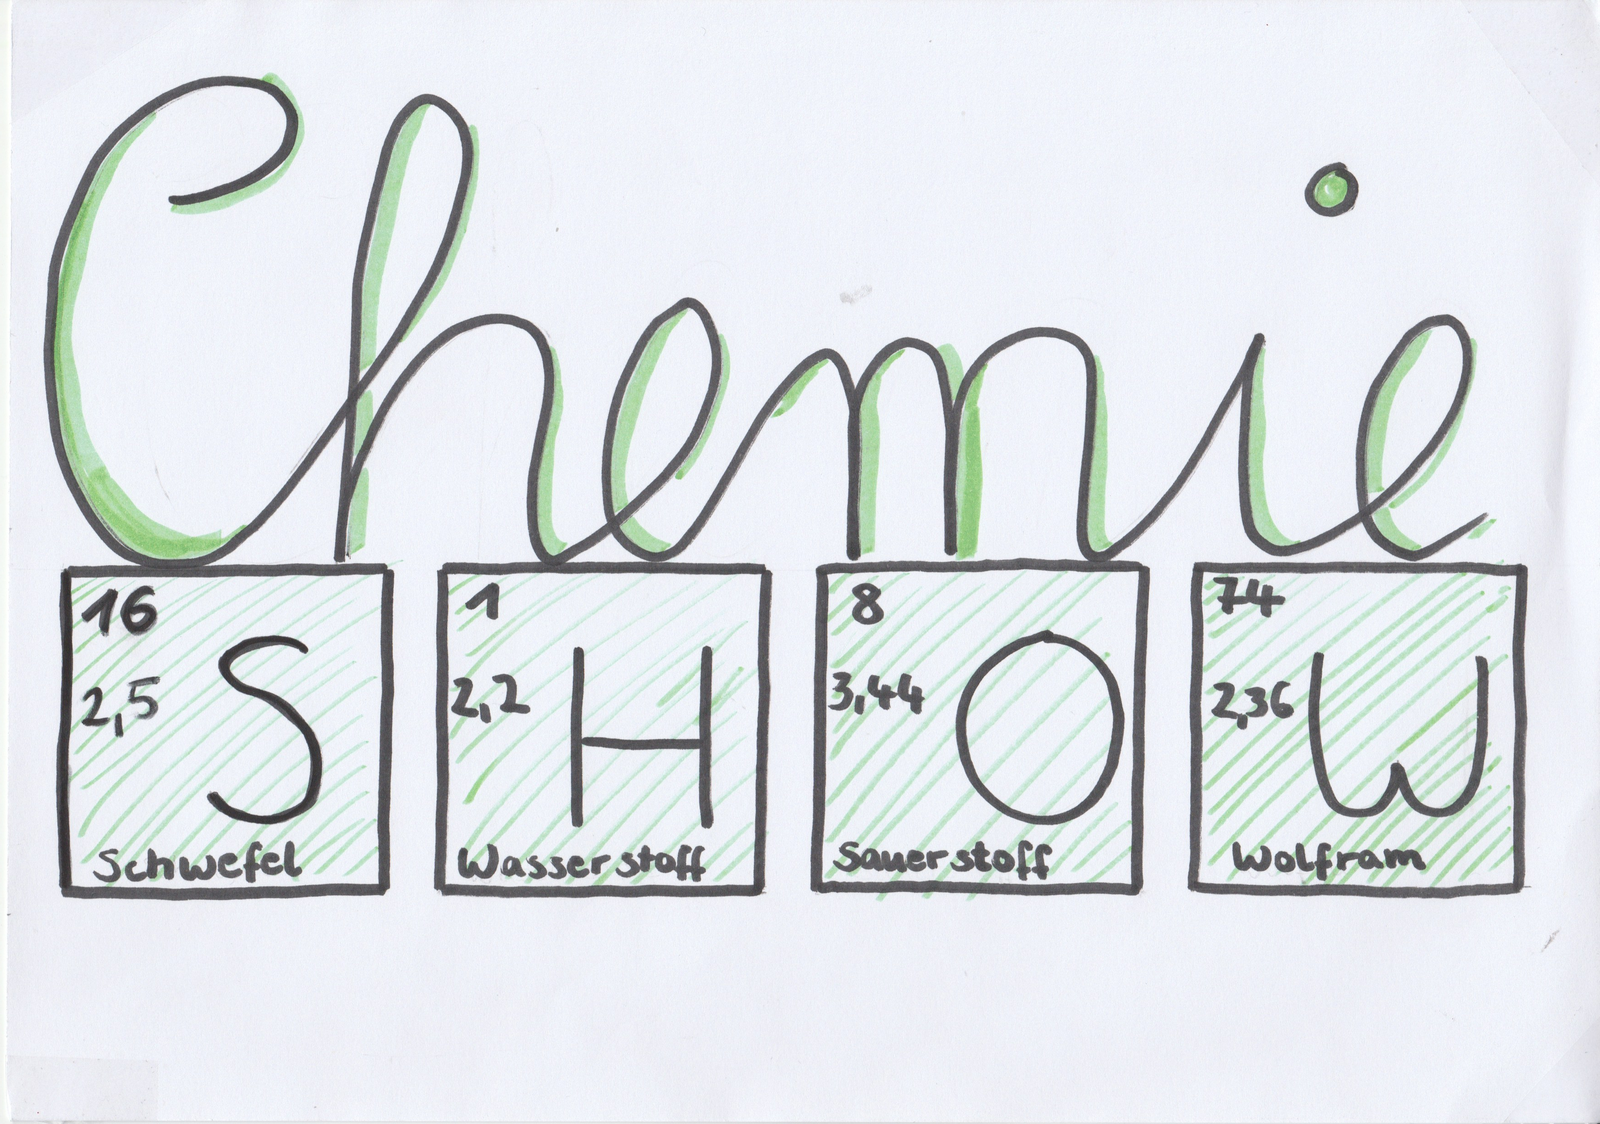 Chemie
16 1 8 74
2,5 S 2,2 H 3,44 O 2,36 W
Schwefel Wasserstoff Sauerstoff Wolfram